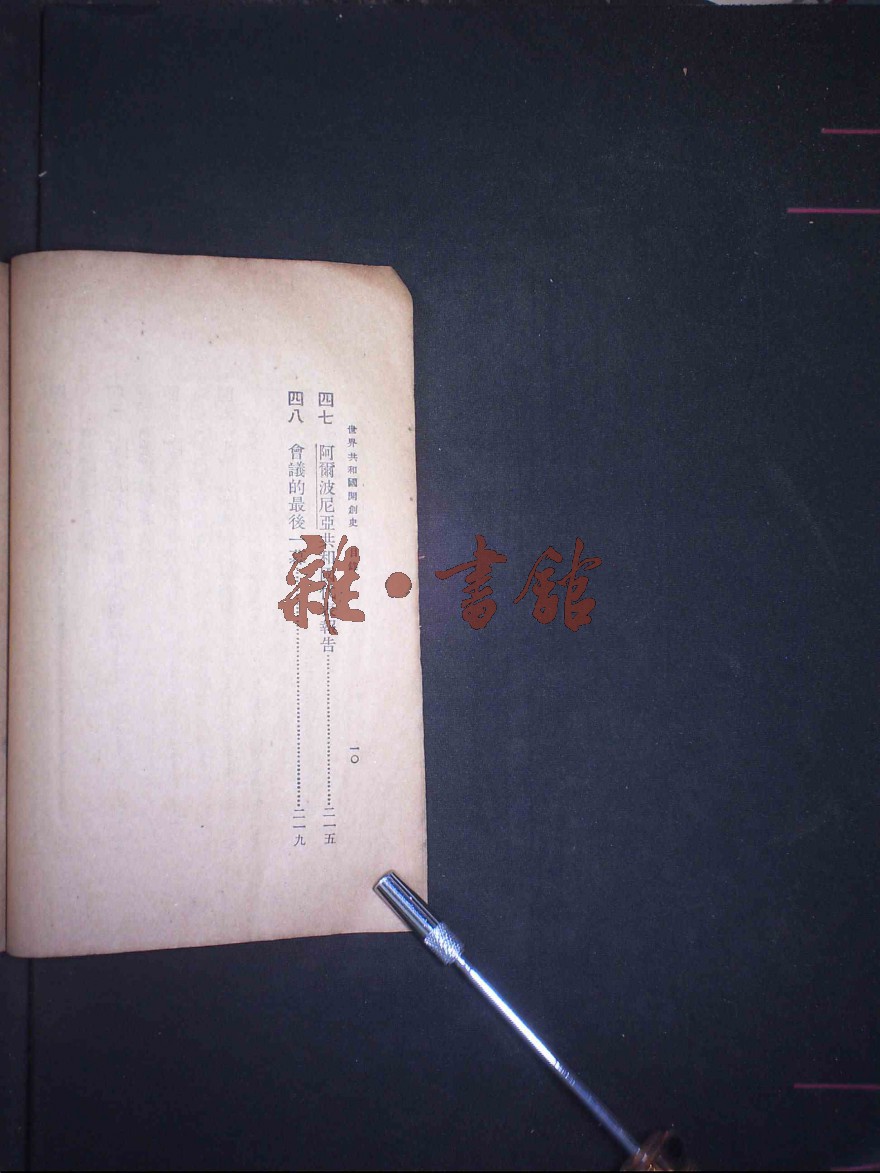 世界共和國開創史 目錄 一〇
四七 阿爾波尼亞共和 報告 二一五
四八 會議的最後一 二一九
雜·書館